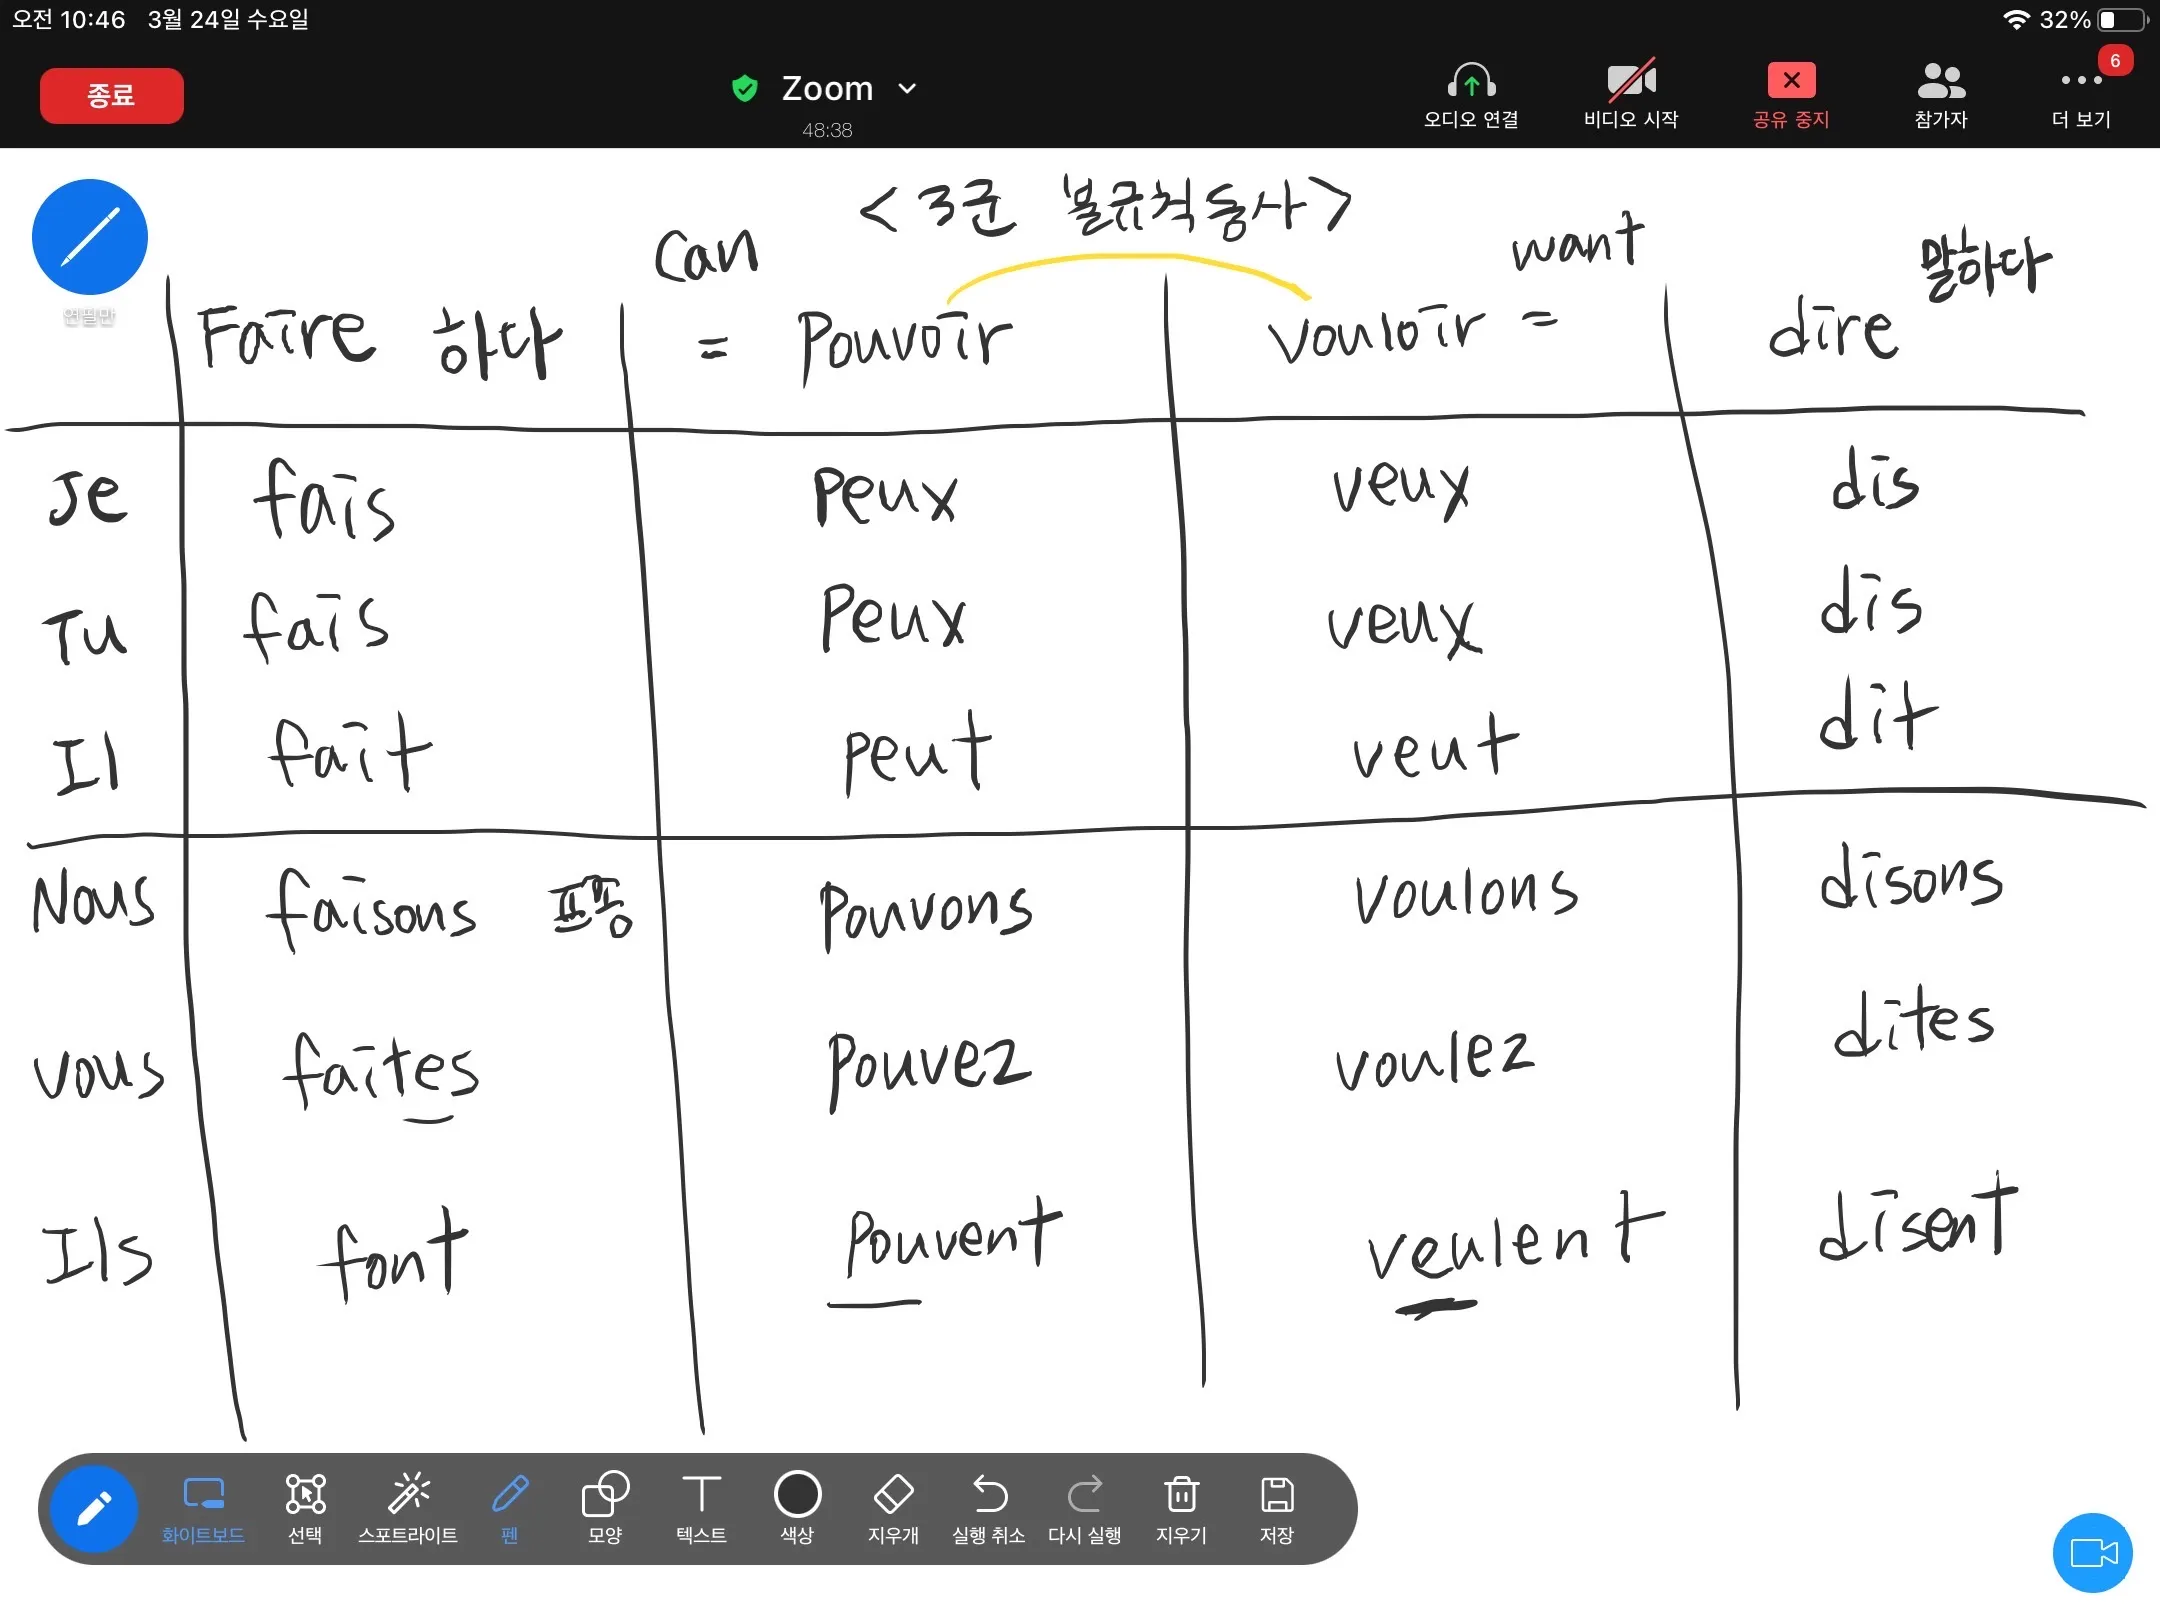 오전 10:46 3월 24일 수요일 32%
종료 Zoom 48:38 오디오 연결 비디오 시작 공유 중지 참가자 6 더 보기
연필만
<3군 불규칙동사>
Can want 말하다
Faire 하다 = Pouvoir vouloir = dire
Je fais Peux veux dis
Tu fais Peux veux dis
Il fait Peut veut dit
Nous faisons Pouvons voulons disons
vous faites Pouvez voulez dites
Ils font Pouvent veulent disent
화이트보드 선택 스포트라이트 펜 모양 텍스트 색상 지우개 실행 취소 다시 실행 지우기 저장